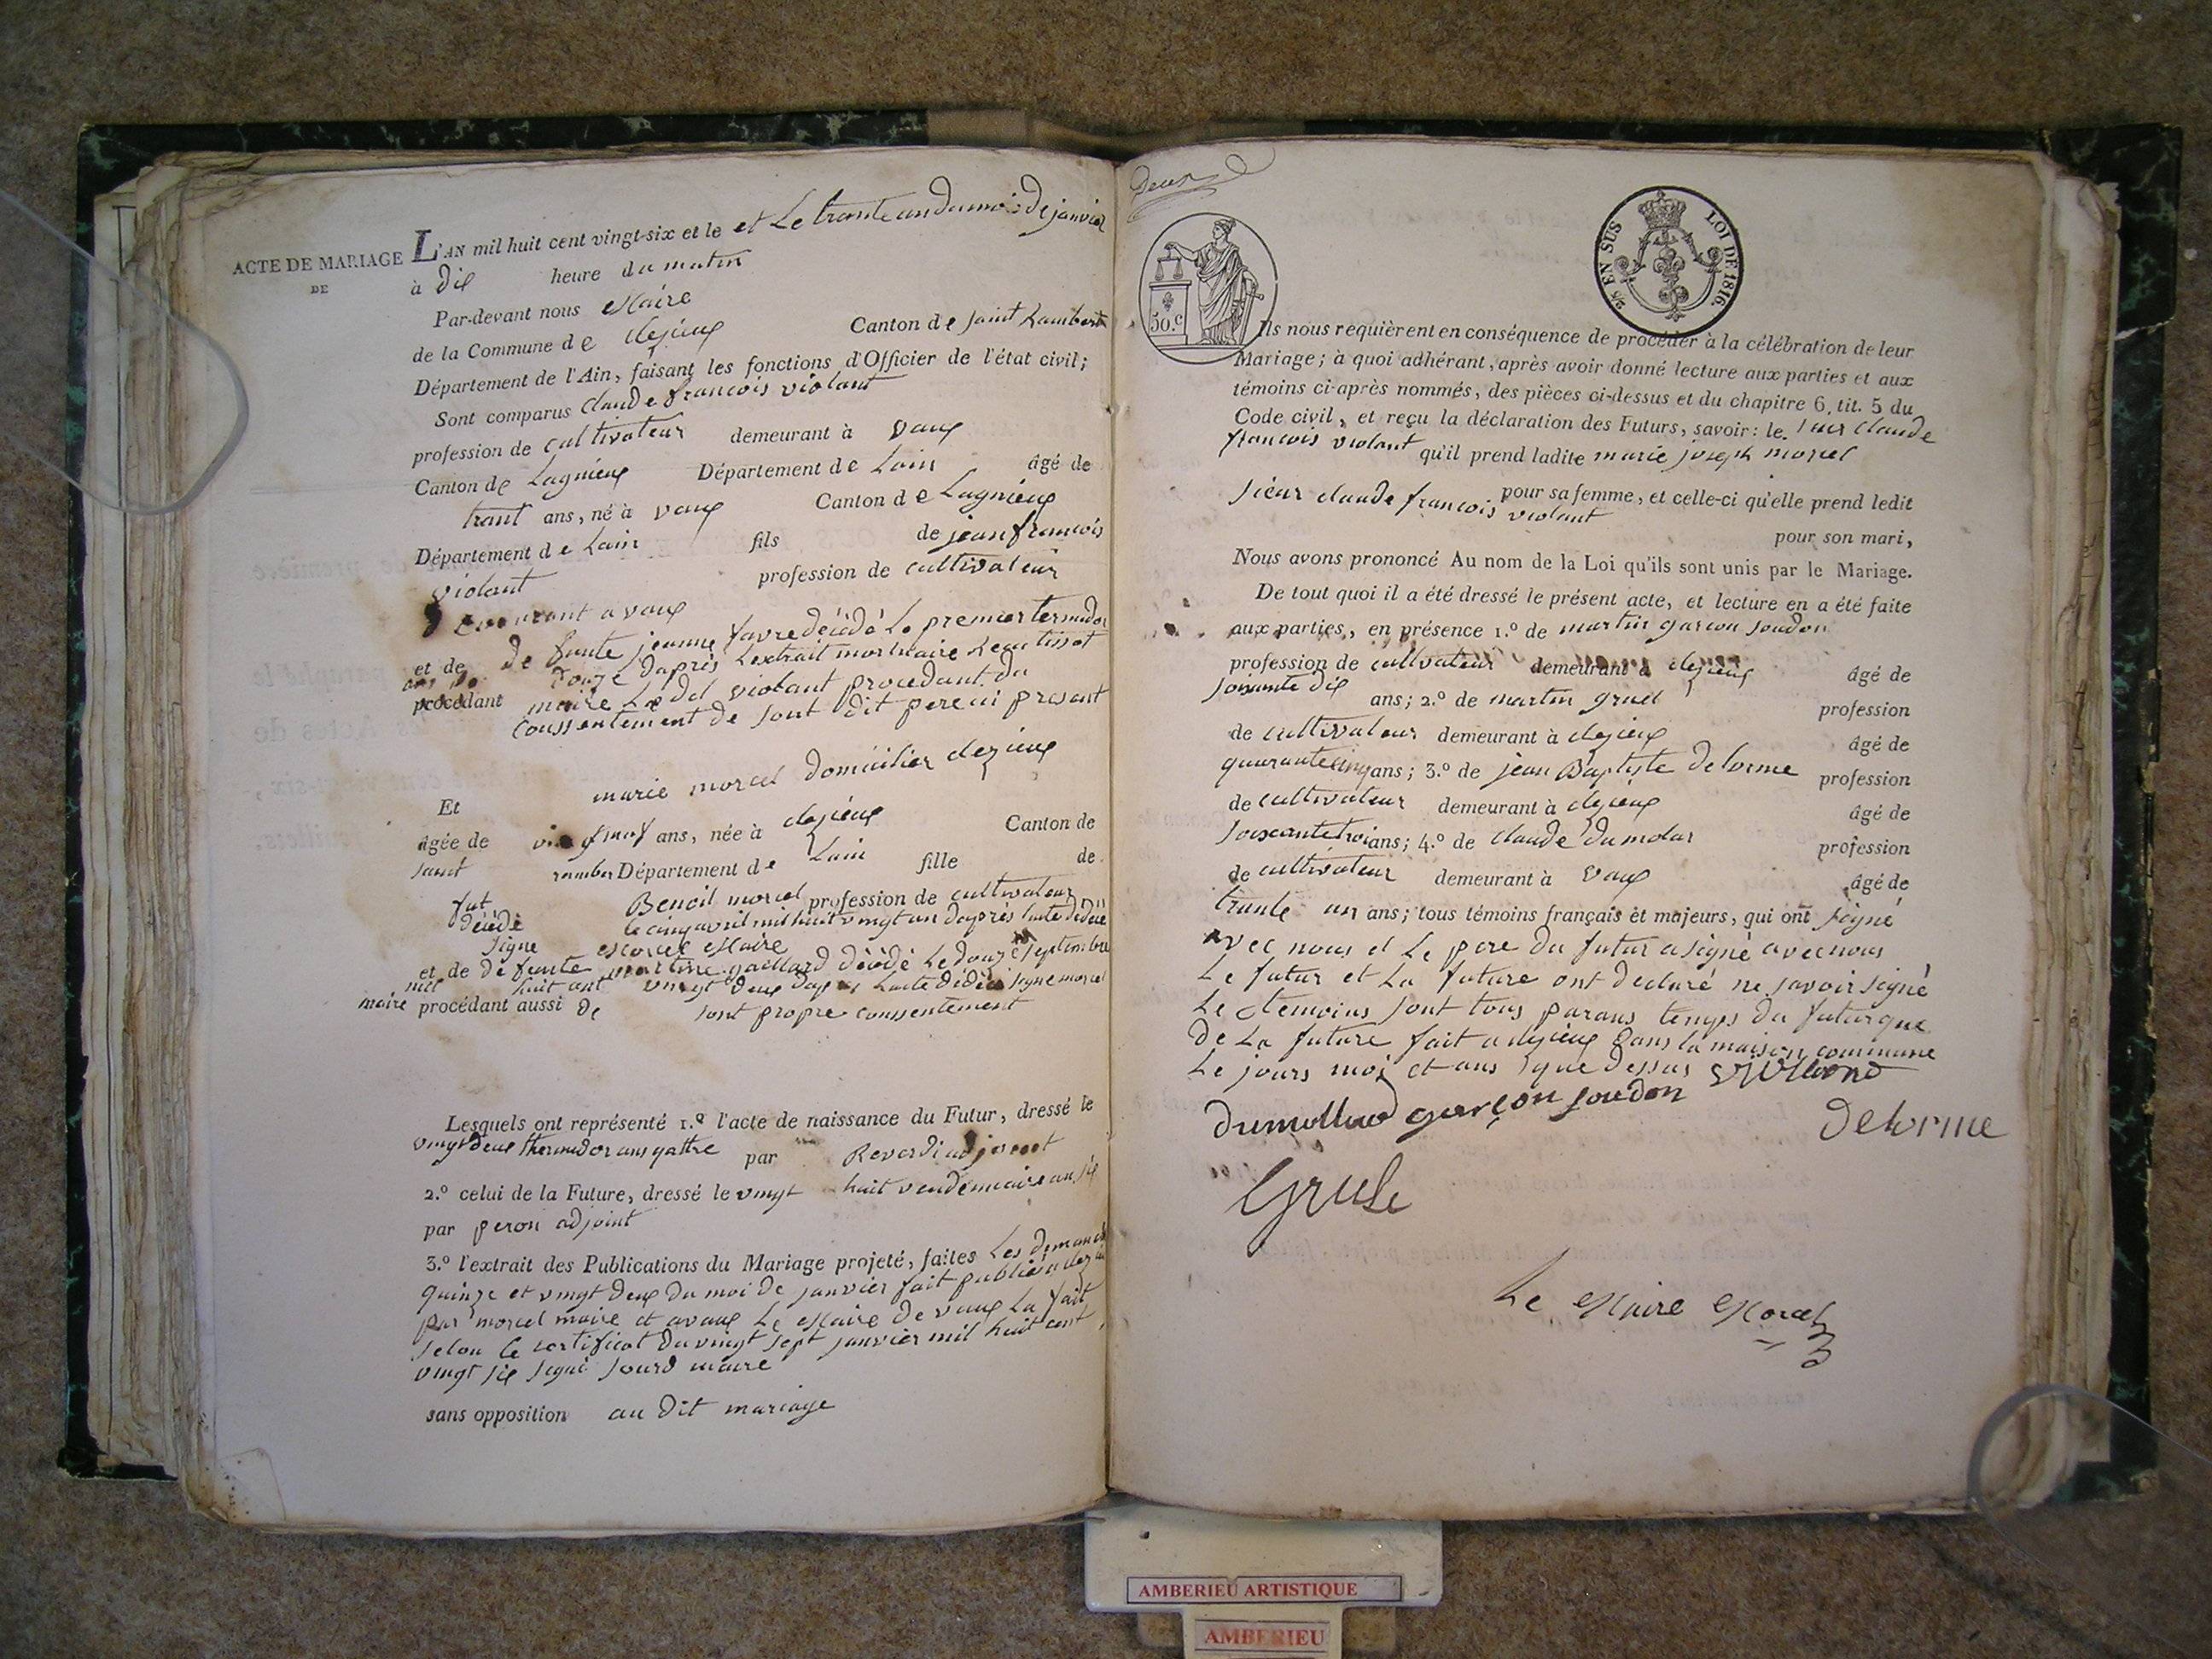 ACTE DE MARIAGE
DE
L'AN mil huit cent vingt-six et le et Le trante un du moi de janvier
à dix heure du matin
Par-devant nous Maire
de la Commune de clezieux Canton de saint Lambert
Département de l'Ain, faisant les fonctions d'Officier de l'état civil;
Sont comparus claude francois violant
profession de cultivateur demeurant à vaux
Canton de Lagnieux Département de Lain âgé de
trant ans, né à vaux Canton de Lagnieux
Département de Lain fils de jean francois
violant profession de cultivateur
demeurant a vaux
et de de funte jeanne favre décédé Le premier termidor
ans douze daprès Lextrait mortuaire Leautissot
procédant maire Le dd violant procedant du
conssentement de sont dit pere ici present
Et marie morcel domicilier clezieux
âgée de vingt nof ans, née à clezieux Canton de
saint rember Département de Lain fille de
fut Benoit morcel profession de cultivateur
décédé le cinq avril mil huit vingt un daprès lacte de décé
signe Morcel Maire
et de de funte martine gaillard décédé Le douze septembre
mil huit cent vingt deux daprès Lacte dédécé signe morcel
maire procédant aussi de sont propre conssentement
Lesquels ont représenté 1.º l'acte de naissance du Futur, dressé le
vingt deux thermidor ans qattre par Reverdi adjoint
2.º celui de la Future, dressé le vingt huit vendemiaire an six
par peron adjoint
3.º l'extrait des Publications du Mariage projeté, faites Les dimanch
quinze et vingt deux du moi de janvier fait publié a clezieu
par morcel maire et avaux Le Maire de vaux La fait
selon le certificat du vingt sept janvier mil huit cent
vingt six signé sourd maire
sans opposition au dit mariage
deux
50.c
2/5 EN SUS LOI DE 1816.
Ils nous requièrent en conséquence de procéder à la célébration de leur
Mariage; à quoi adhérant, après avoir donné lecture aux parties et aux
témoins ci-après nommés, des pièces ci-dessus et du chapitre 6, tit. 5 du
Code civil, et reçu la déclaration des Futurs, savoir: le. sieur claude
francois violant qu'il prend ladite marie joseph morcel
pour sa femme, et celle-ci qu'elle prend ledit
sieur claude francois violant
pour son mari,
Nous avons prononcé Au nom de la Loi qu'ils sont unis par le Mariage.
De tout quoi il a été dressé le présent acte, et lecture en a été faite
aux parties, en présence 1.º de martin garcon soudon
profession de cultivateur demeurant à clezieux âgé de
soisante dix ans; 2.º de martin gruel profession
de cultivateur demeurant à clezieux âgé de
quarante cinq ans; 3.º de jean Baptiste delorme profession
de cultivateur demeurant à clezieux âgé de
soixante troi ans; 4.º de claude dumolar profession
de cultivateur demeurant à vaux âgé de
trante un ans; tous témoins français et majeurs, qui ont signé
avec nous et Le pere du futur a signé avec nous
Le futur et La future ont declaré ne savoir signé
Le temoins sont tous parans temps du futur que
de La future fait a clezieux dans la maison commune
Le jours moi et ans que dessus
dumollard garçon soudon
Delorme
Grule
Le Maire Morcel
AMBERIEU ARTISTIQUE
AMBERIEU